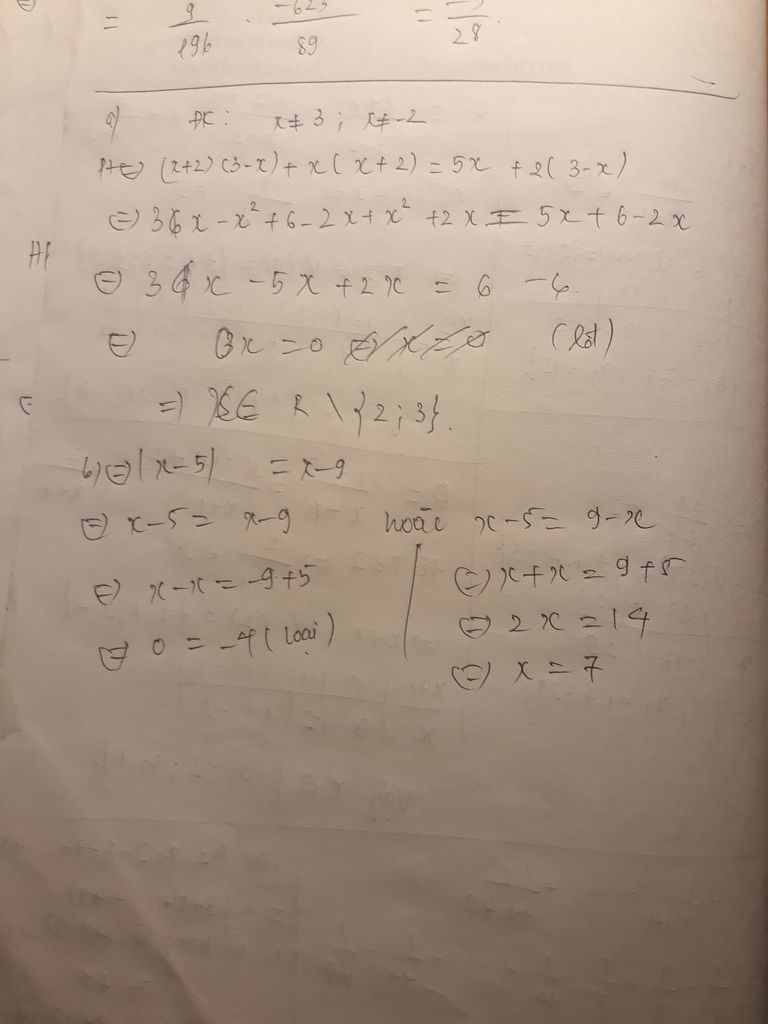 = 9/196 . -623/89 = /28.
a) ĐK: x ≠ 3 ; x ≠ -2
(x+2)(3-x) + x(x+2) = 5x + 2(3-x)
⇔ 3x - x² + 6 - 2x + x² + 2x = 5x + 6 - 2x
⇔ 3x - 5x + 2x = 6 - 6
⇔ 0x = 0 (lđt)
⇒ x ∈ R \ {2; 3}.
b) ⇔ |x-5| = x-9
⇔ x-5 = x-9 hoặc x-5 = 9-x
⇔ x-x = -9+5 ⇔ x+x = 9+5
⇔ 0 = -4 (loại) ⇔ 2x = 14
⇔ x = 7